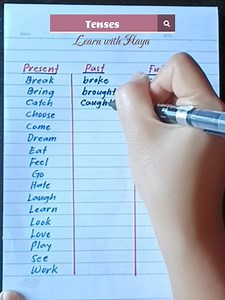 Tenses
Learn with Haya
Present Past Fu
Break broke
Bring brought
Catch Caught
Choose
Come
Dream
Eat
Feel
Go
Hate
Laugh
Learn
Look
Love
Play
See
Work